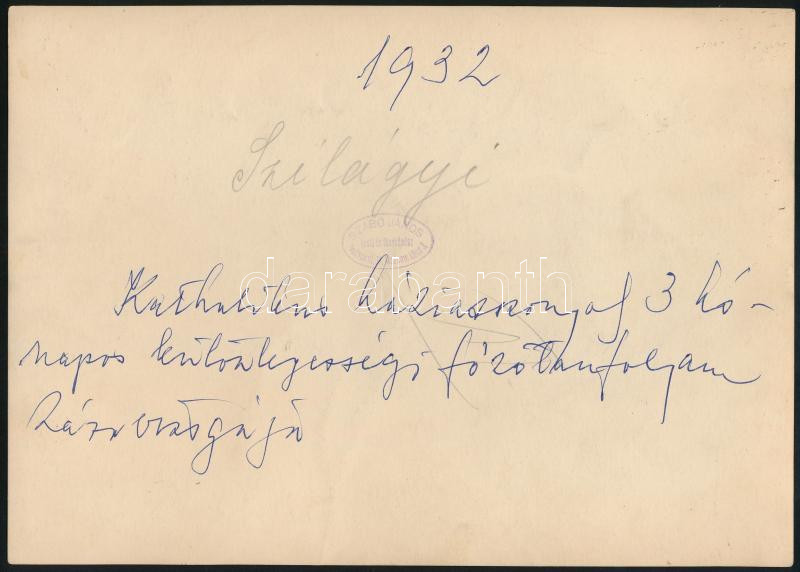 1932
Szilágyi
SZABÓ JÁNOS
darabanth
Katholikus háziasszonyok 3 hó-
napos különlegességi főzőtanfolyam
záróvizsgája